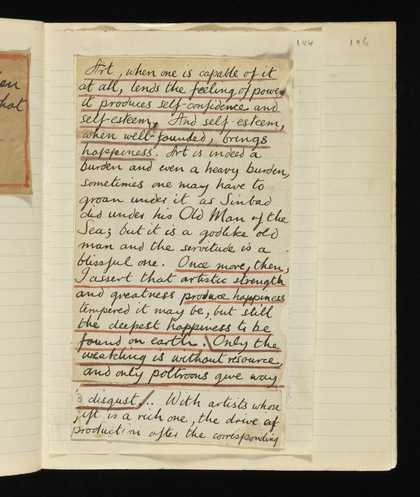 en
hat
144 196
Art, when one is capable of it
at all, lends the feeling of power
it produces self-confidence and
self-esteem. And self-esteem,
when well-founded, brings
happiness. Art is indeed a
burden and even a heavy burden,
sometimes one may have to
groan under it as Sinbad
did under his Old Man of the
Sea; but it is a godlike old
man and the servitude is a
blissful one. Once more, then,
I assert that artistic strength
and greatness produce happiness
tempered it may be, but still
the deepest happiness to be
found on earth. Only the
weakling is without resource,
and only poltroons give way
to disgust... With artists whose
gift is a rich one, the drive of
production after the corresponding